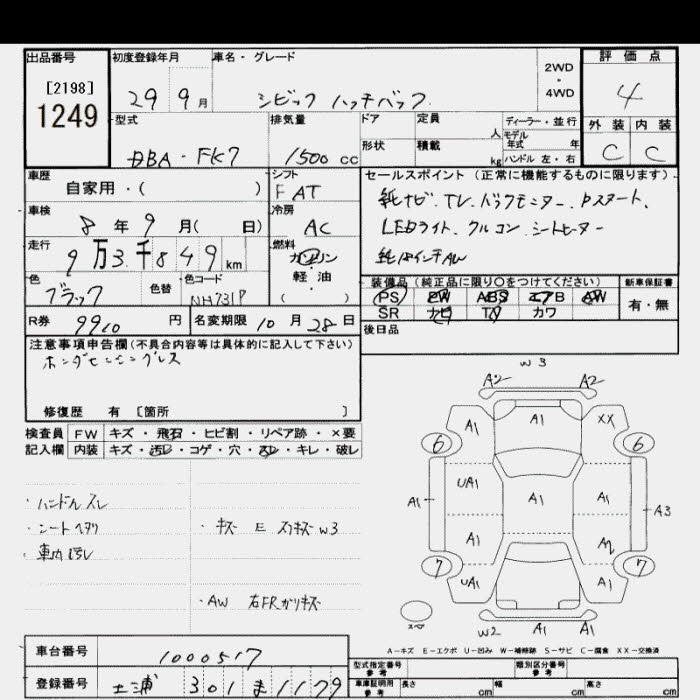 出品番号
[2198]
1249
初度登録年月
29 9月
車名・グレード
シビック ハッチバック
2WD
・
4WD
評価点
4
外装 内装
C C
型式
DBA-FK7
排気量
1500 cc
ドア 定員 人
形状 積載 kg
ディーラー・並行
モデル年式 年
ハンドル 左・右
車歴
自家用・( )
シフト
F AT
車検
8年 9月( 日)
冷房
AC
走行
9万3千849km
燃料
ガソリン
軽・油
( )
色
ブラック
色替
色コード
NH731P
R券 9910 円
名変期限 10月28日
セールスポイント(正常に機能するものに限ります)
純ナビ、TV、バックモニター、Pスタート、
LEDライト、クルコン、シートヒーター
純18インチAW
装備品(純正品に限り○をつけてください)
PS PW ABS エアB AW
SR ナビ TV カワ
新車保証書
有・無
後日品
注意事項申告欄(不具合内容等は具体的に記入して下さい)
ホンダセンシングレス
修復歴 有 [箇所 ]
検査員 FW キズ・飛石・ヒビ割・リペア跡・×要
記入欄 内装 キズ・汚レ・コゲ・穴・スレ・キレ・破レ
・ハンドルスレ
・シートヘタリ
・車内汚レ
・キズ E スリキズ W3
・AW 右FRガリキズ
W3
A2 A2
A1 A1 XX
6 6
UA1 A1 A1
A1 A3
A1 A2
7 7
UA1 A1
スペア
W2 A1 A1
A-キズ E-エクボ U-凹み W-補修跡 S-サビ C-腐食 XX-交換済
車台番号 1000517
登録番号 土浦 301 ま 1179
型式指定番号 参考
類別区分番号 参考
車庫証明用 参考 長さ cm 幅 cm 高さ cm